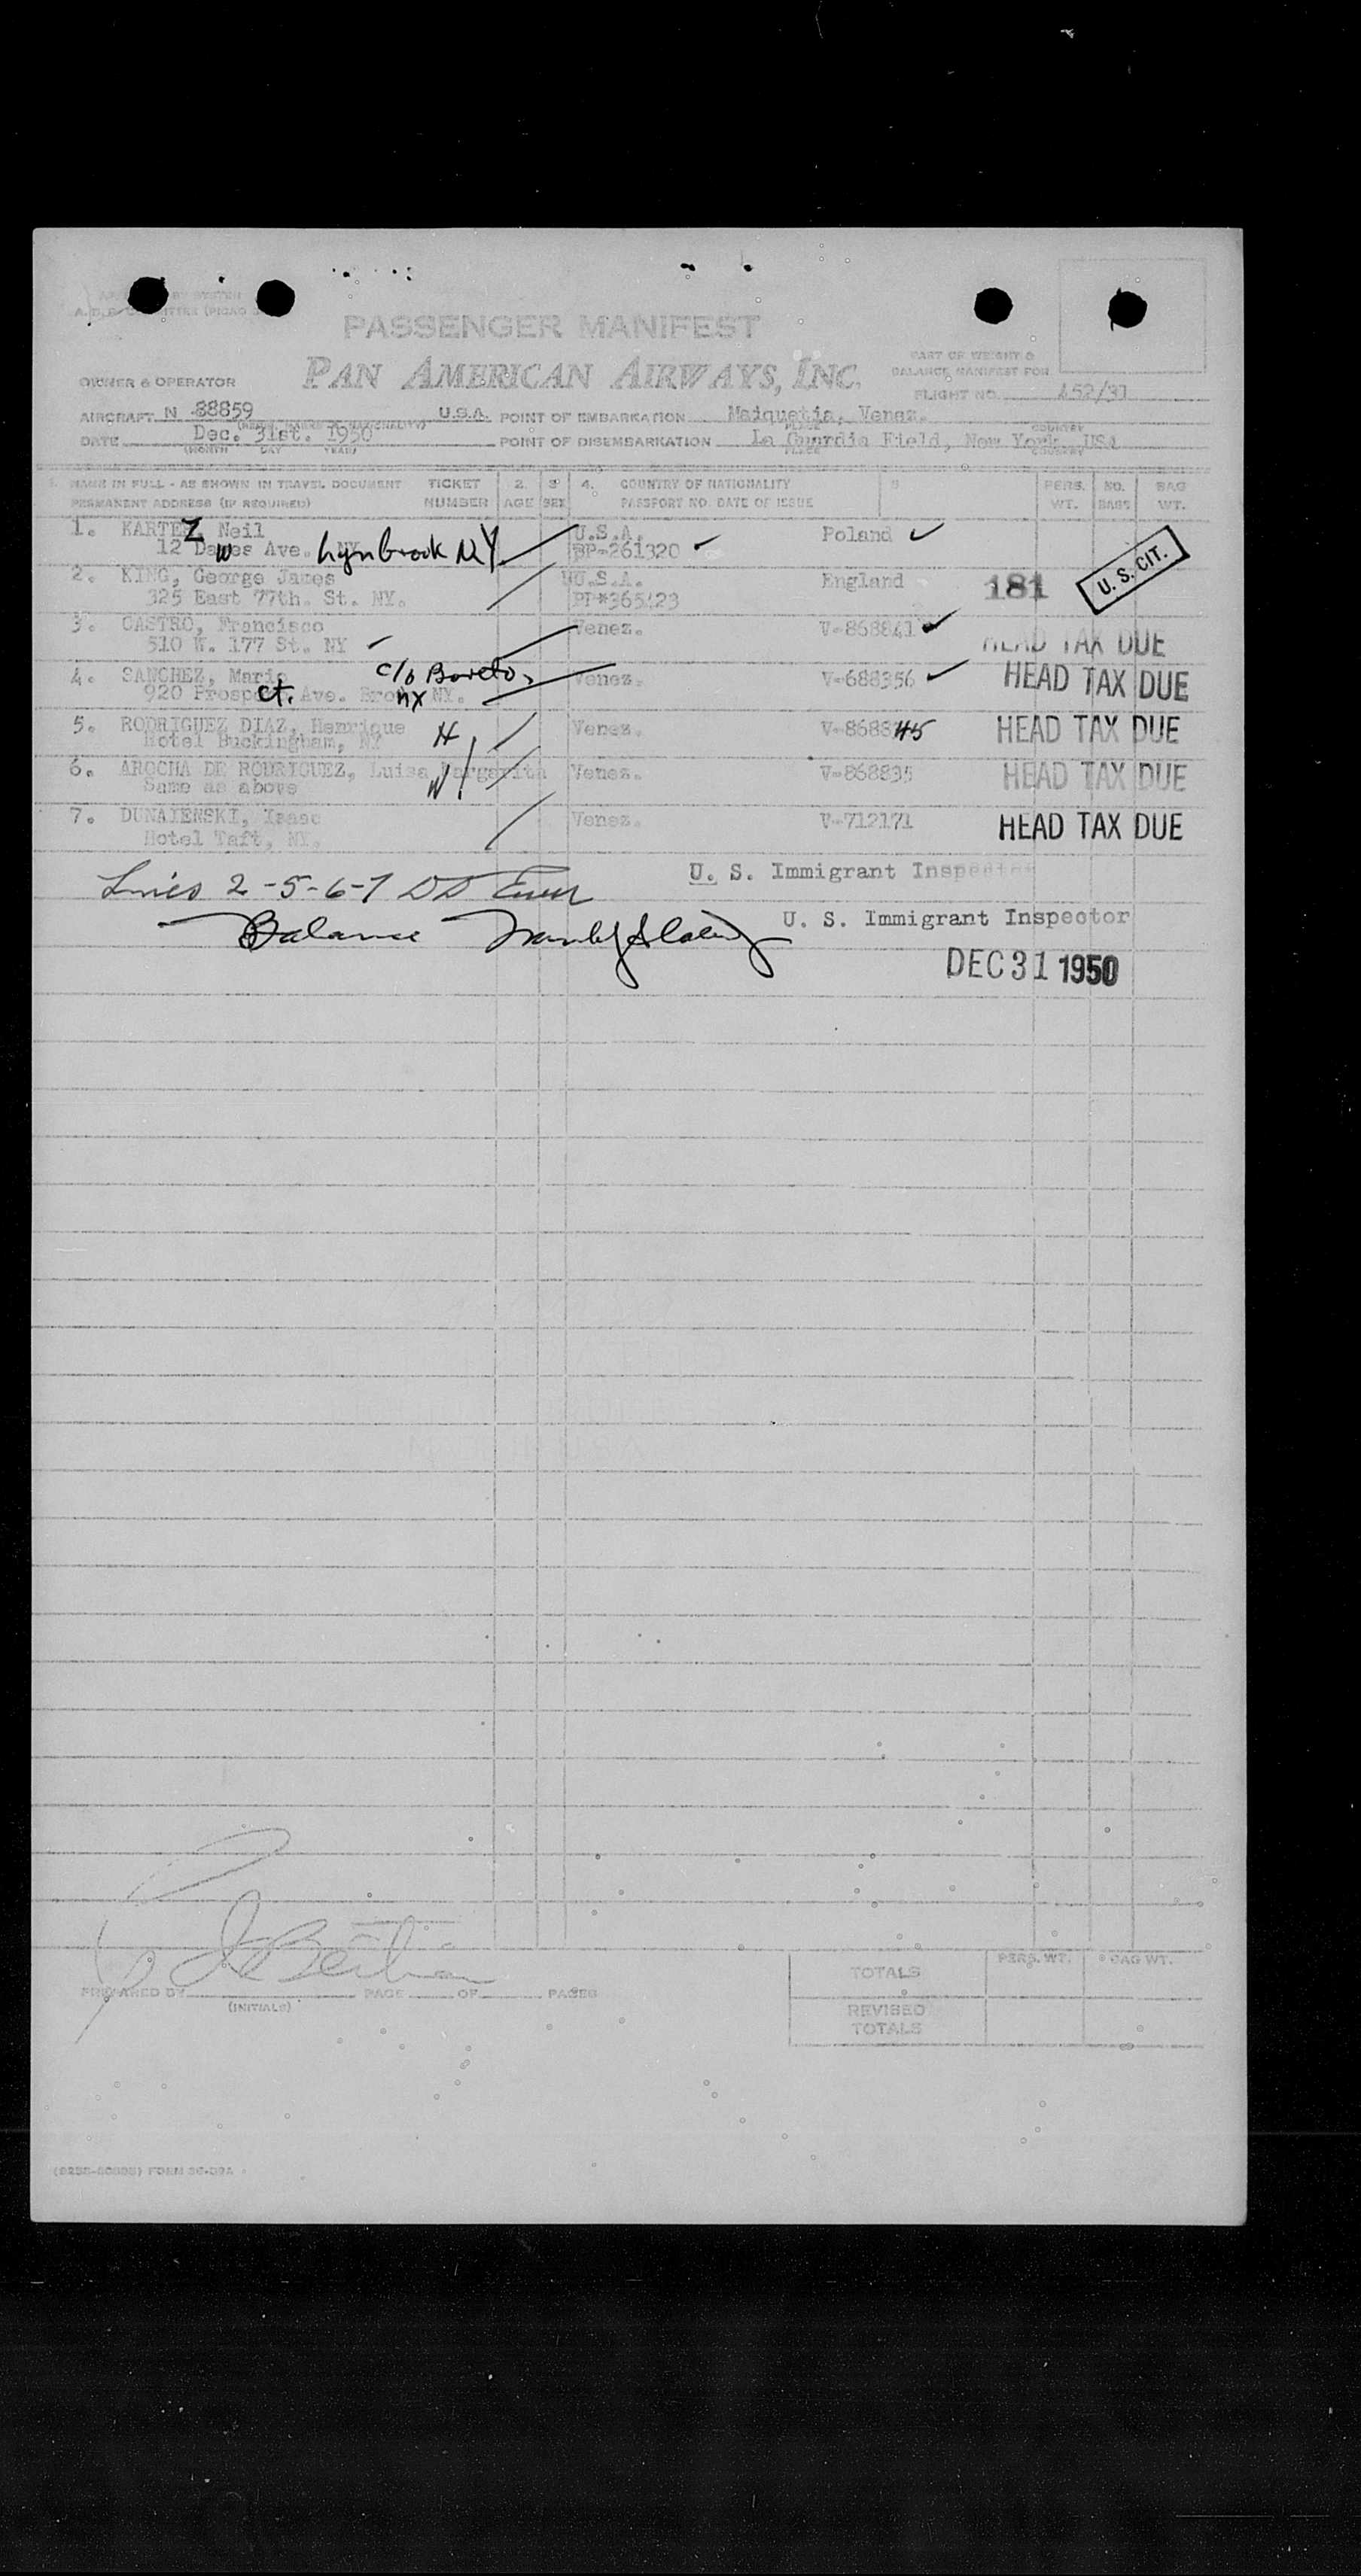 PASSENGER MANIFEST
PAN AMERICAN AIRWAYS, INC.
PART OF WEIGHT &
BALANCE MANIFEST FOR
OWNER & OPERATOR
FLIGHT NO. 452/31
AIRCRAFT N 88859 U.S.A. POINT OF EMBARKATION Maiquetia, Venez.
DATE Dec. 31st. 1950 POINT OF DISEMBARKATION La Guardia Field, New York, USA
(MONTH DAY YEAR) PLACE COUNTRY
1. NAME IN FULL - AS SHOWN IN TRAVEL DOCUMENT TICKET 2. 3 4. COUNTRY OF NATIONALITY 5 PERS. NO. BAG
PERMANENT ADDRESS (IF REQUIRED) NUMBER AGE SEX PASSPORT NO. DATE OF ISSUE WT. BAGS WT.
1. KARTEZ, Neil U.S.A. Poland
12 Dawes Ave. NY Lynbrook NY. BP-261320
U. S. CIT.
2. KING, George James U.S.A. England 181
325 East 77th. St. NY. PP*365423
3. CASTRO, Francisco Venez. V-868841 HEAD TAX DUE
510 W. 177 St. NY
4. SANCHEZ, Mario c/o Boreto, Venez. V-688356 HEAD TAX DUE
920 Prospect. Ave. Bronx NY.
5. RODRIGUEZ DIAZ, Henrique H Venez. V-868845 HEAD TAX DUE
Hotel Buckingham, NY
6. AROCHA DE RODRIGUEZ, Luisa Margarita W Venez. V-868835 HEAD TAX DUE
Same as above
7. DUNAIENSKI, Isaac Venez. V-712171 HEAD TAX DUE
Hotel Taft, NY.
Lines 2-5-6-7 U. S. Immigrant Inspector
Balance U. S. Immigrant Inspector
DEC 31 1950
PREPARED BY PAGE OF PAGES
(INITIALS)
TOTALS PERS. WT. BAG WT.
REVISED
TOTALS